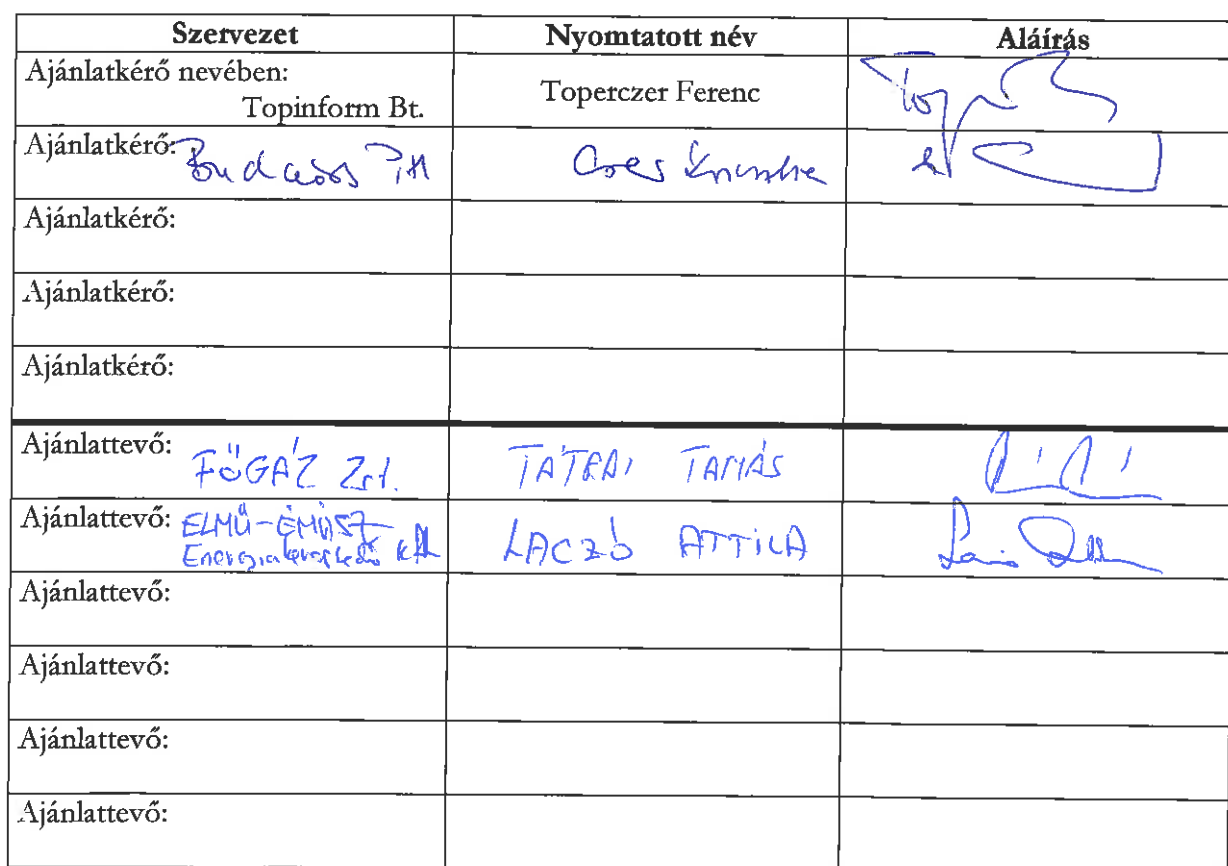 Szervezet Nyomtatott név Aláírás
Ajánlatkérő nevében:
Topinform Bt. Toperczer Ferenc
Ajánlatkérő: Budaörs PH
Ajánlatkérő:
Ajánlatkérő:
Ajánlatkérő:
Ajánlattevő: FŐGÁZ Zrt. TÁTRAI TAMÁS
Ajánlattevő: ELMŰ-ÉMÁSZ LACZÓ ATTILA
Energiakereskedő Kft
Ajánlattevő:
Ajánlattevő:
Ajánlattevő:
Ajánlattevő: